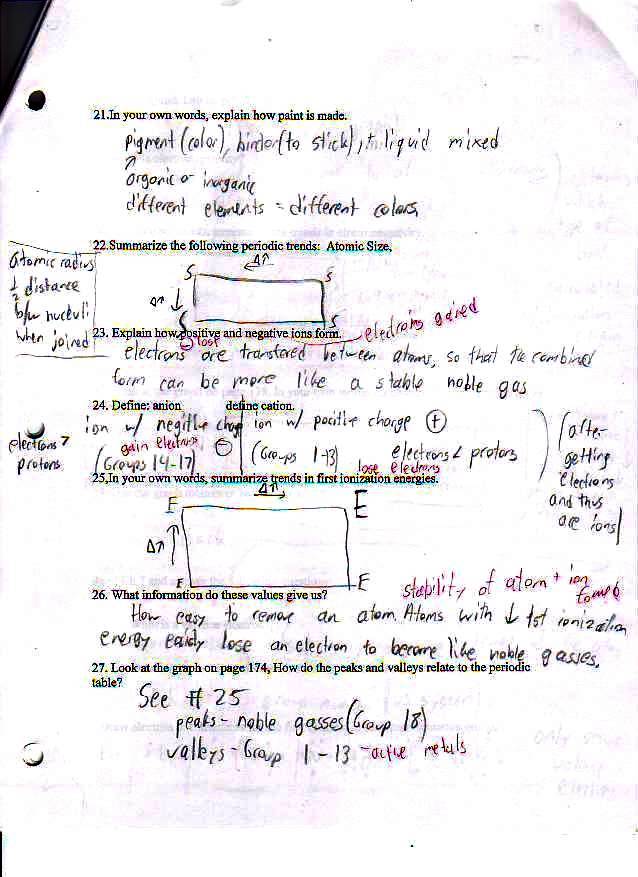 21.In your own words, explain how paint is made.
pigment (color), binder (to stick), + liquid mixed
organic or inorganic
different elements = different colors
22.Summarize the following periodic trends: Atomic Size,
atomic radius
1/2 distance
b/w nuclui
when joined
S S
S S
23. Explain how positive and negative ions form.
lost
electrons gained
electrons are transfered between atoms, so that the combined
form can be more like a stable noble gas
24. Define: anion define cation.
ion w/ negitive charge ion w/ positive charge +
gain electrons -
(Groups 14-17) (Groups 1-13) electrons < protons
lose electrons
electrons >
protons
(after
getting
electrons
and thus
are ions)
25.In your own words, summarize trends in first ionization energies.
E E
E E
26. What information do these values give us?
stability of atom + ion
formed
How easy to remove an atom. Atoms with ↓ 1st ionization
energy easily lose an electron to become like noble gasses.
27. Look at the graph on page 174, How do the peaks and valleys relate to the periodic
table?
See # 25
peaks - noble gasses (Group 18)
valleys - Group 1 - 13 - active metals